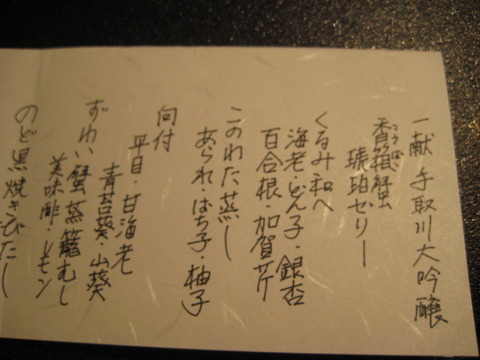 一献 手取川大吟醸
こうばこ
香箱蟹
琥珀ゼリー
くるみ和へ
海老・どん子・銀杏
百合根・加賀芹
このわた蒸し
あられ・ばち子・柚子
向付
平目・甘海老
山葵
ずわい蟹蒸籠むし
美味酢・レモン
のど黒焼きびたし